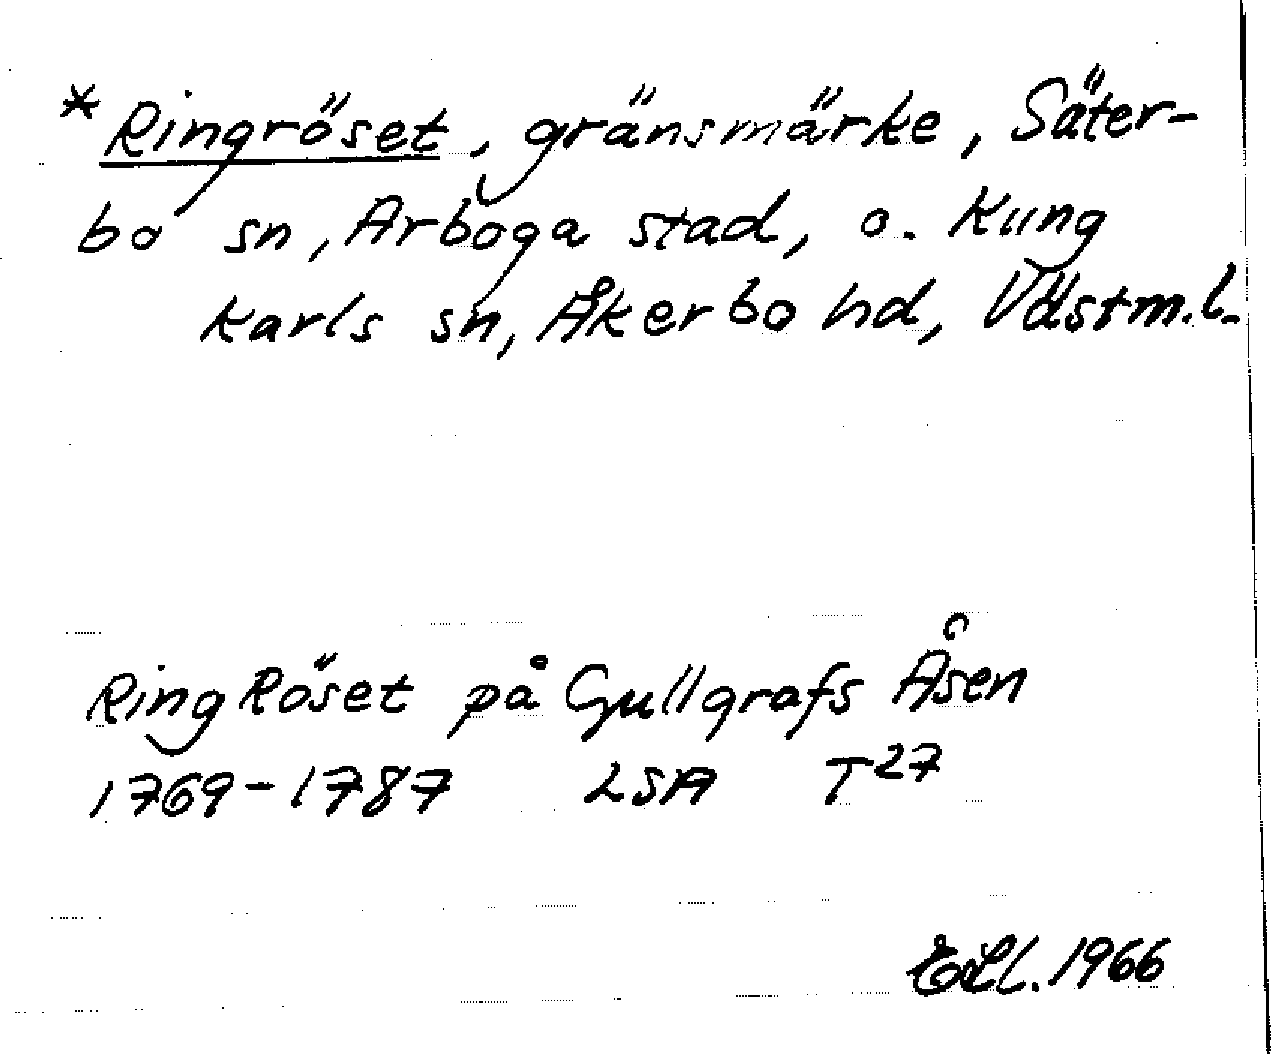 * Ringröset, gränsmärke, Säter-
bo sn, Arboga stad, o. Kung
karls sn, Åkerbo hd, Västm.l.
Ring Röset på Gullgrafs Åsen
1769-1787 LSA T27
1966